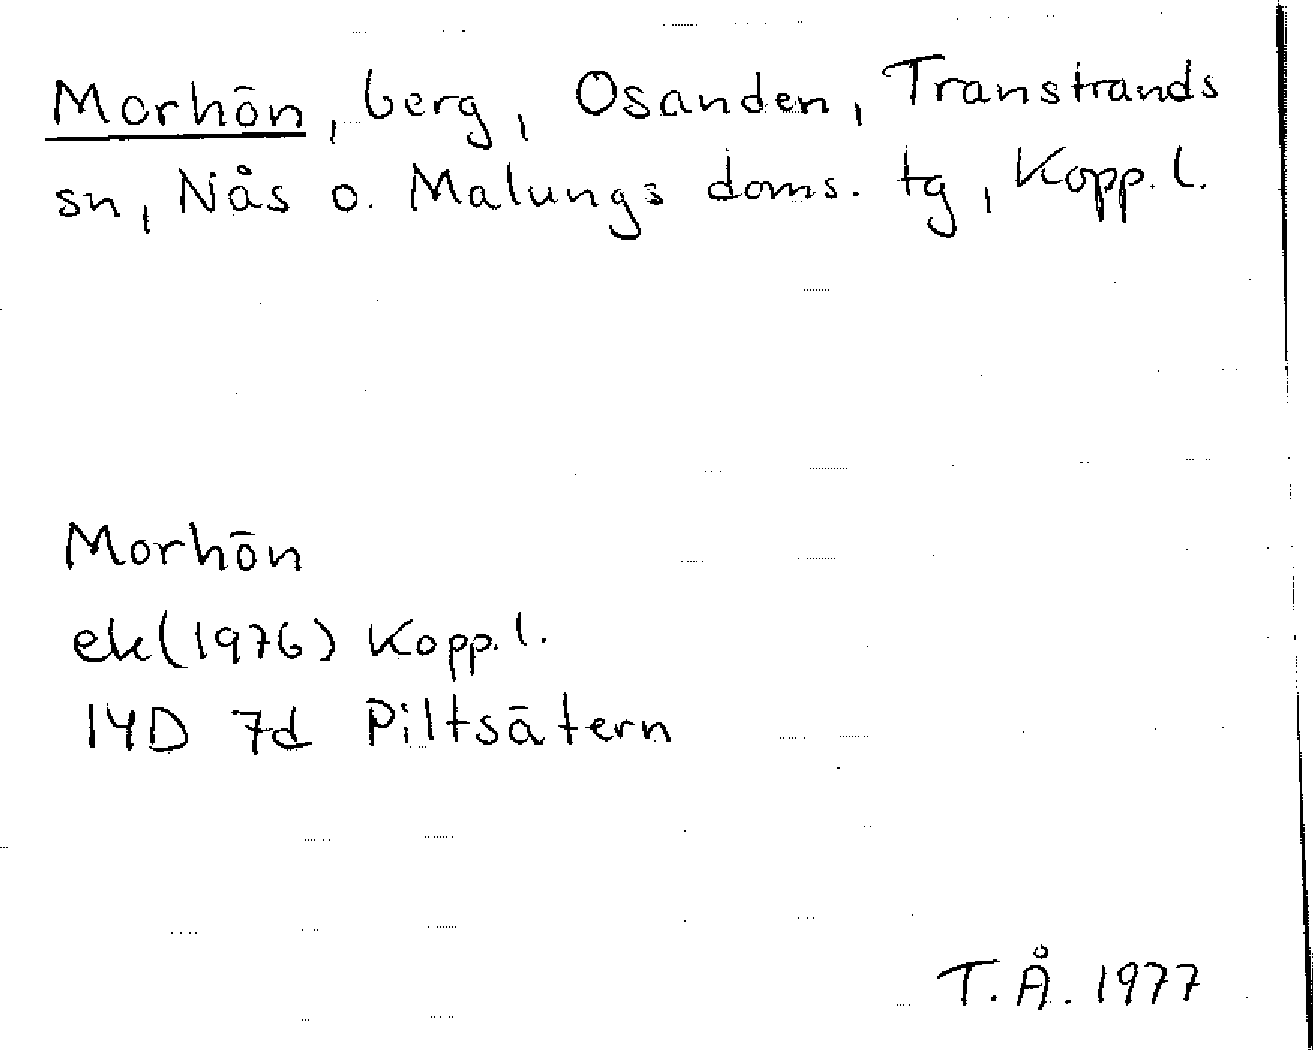 Morhön, berg, Ösanden, Transtrands
sn, Nås o. Malungs doms. tg, Kopp. l.
Morhön
ek (1976) Kopp. l.
14D 7d Piltsätern
T. Å. 1977